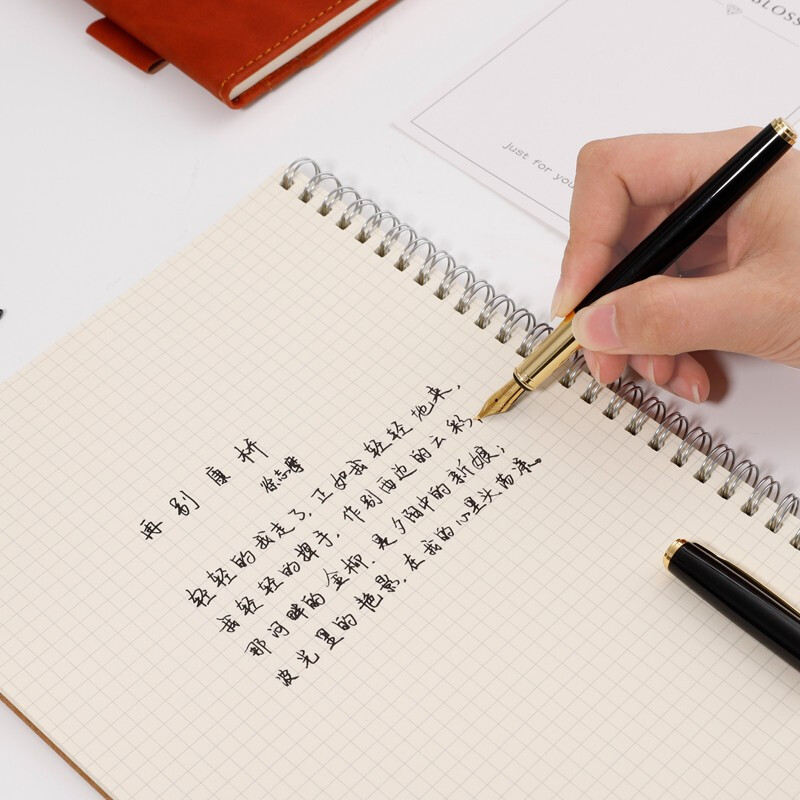 再别康桥
徐志摩
轻轻的我走了,正如我轻轻地来,
我轻轻的挥手,作别西边的云彩,
那河畔的金柳.是夕阳中的新娘;
波光里的艳影.在我的心里头荡漾。
BLOSS
Just for you